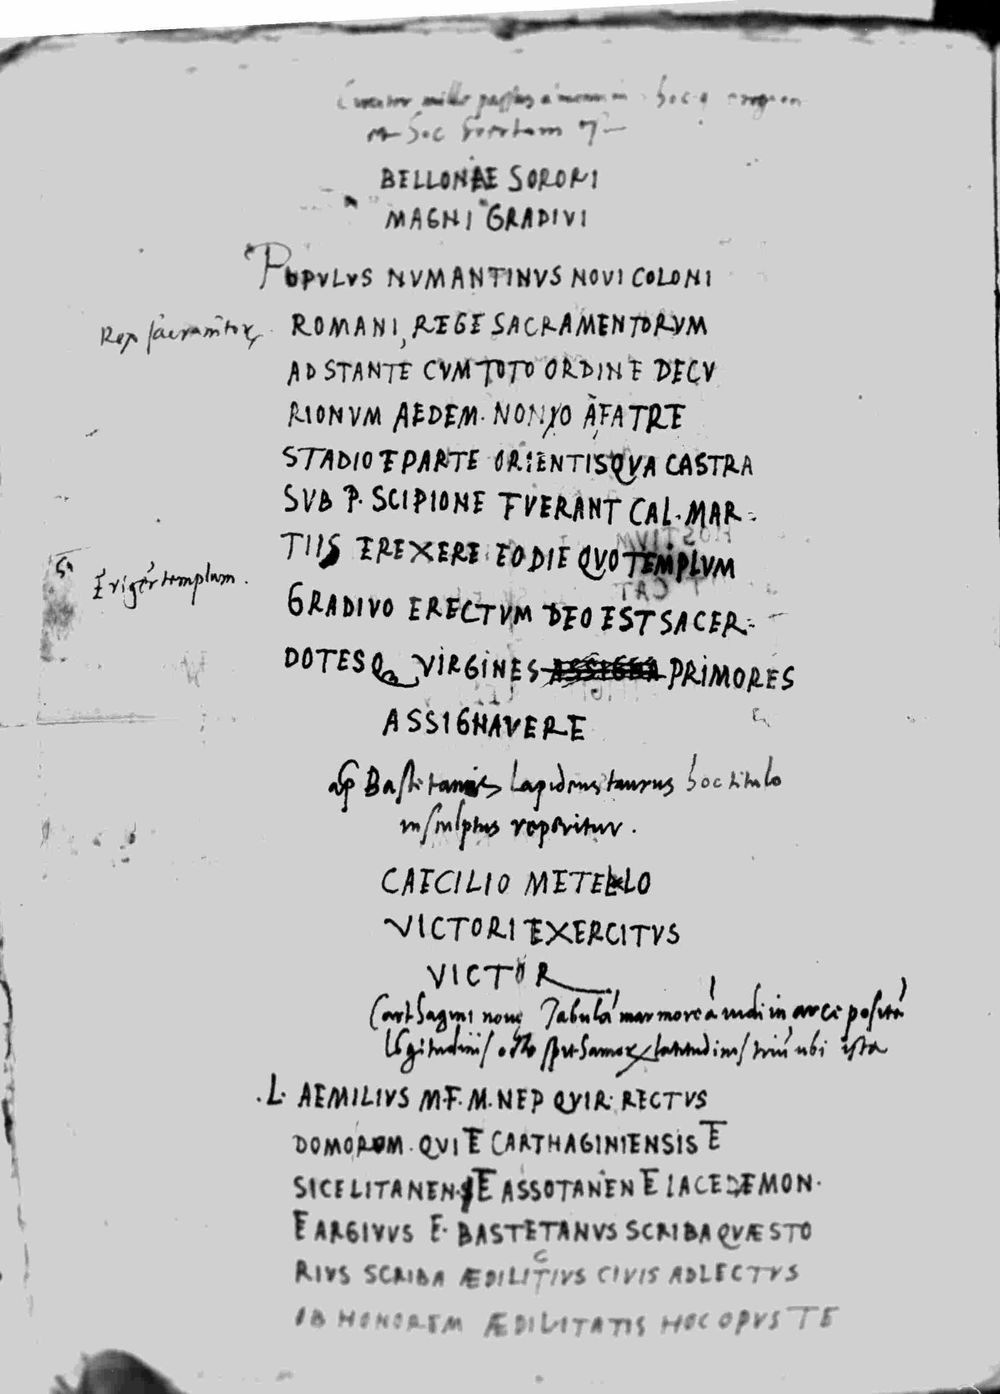 mille passus a
hoc
BELLONAE SORORI
MAGNI GRADIVI
POPVLVS NVMANTINVS NOVI COLONI
ROMANI, REGE SACRAMENTORVM
AD STANTE CVM TOTO ORDINE DECV
RIONVM AEDEM. NONIO AFATRE
STADIO E PARTE ORIENTIS QVA CASTRA
SVB P. SCIPIONE FVERANT CAL. MAR-
TIIS EREXERE EO DIE QVO TEMPLVM
Eriger templum.
GRADIVO ERECTVM DEO EST SACER-
DOTESQ VIRGINES PRIMORES
ASSIGNAVERE
ap Bastitanos Lapideus taurus hoc titulo
insculptus reperitur.
CAECILIO METELLO
VICTORI EXERCITVS
VICTOR
Carthagini noue Tabulā marmoreā uidi in arce positā
ubi ista
.L. AEMILIVS M.F. M. NEP QVIR. RECTVS
DOMO ROM. QVI E CARTHAGINIENSIS E
SICELITANEN. E ASSOTANEN E LACEDEMON.
E ARGIVVS E. BASTETANVS SCRIBA QVÆSTO
RIVS SCRIBA ÆDILITIVS CIVIS ADLECTVS
OB HONOREM ÆDILITATIS HOC OPVS TE